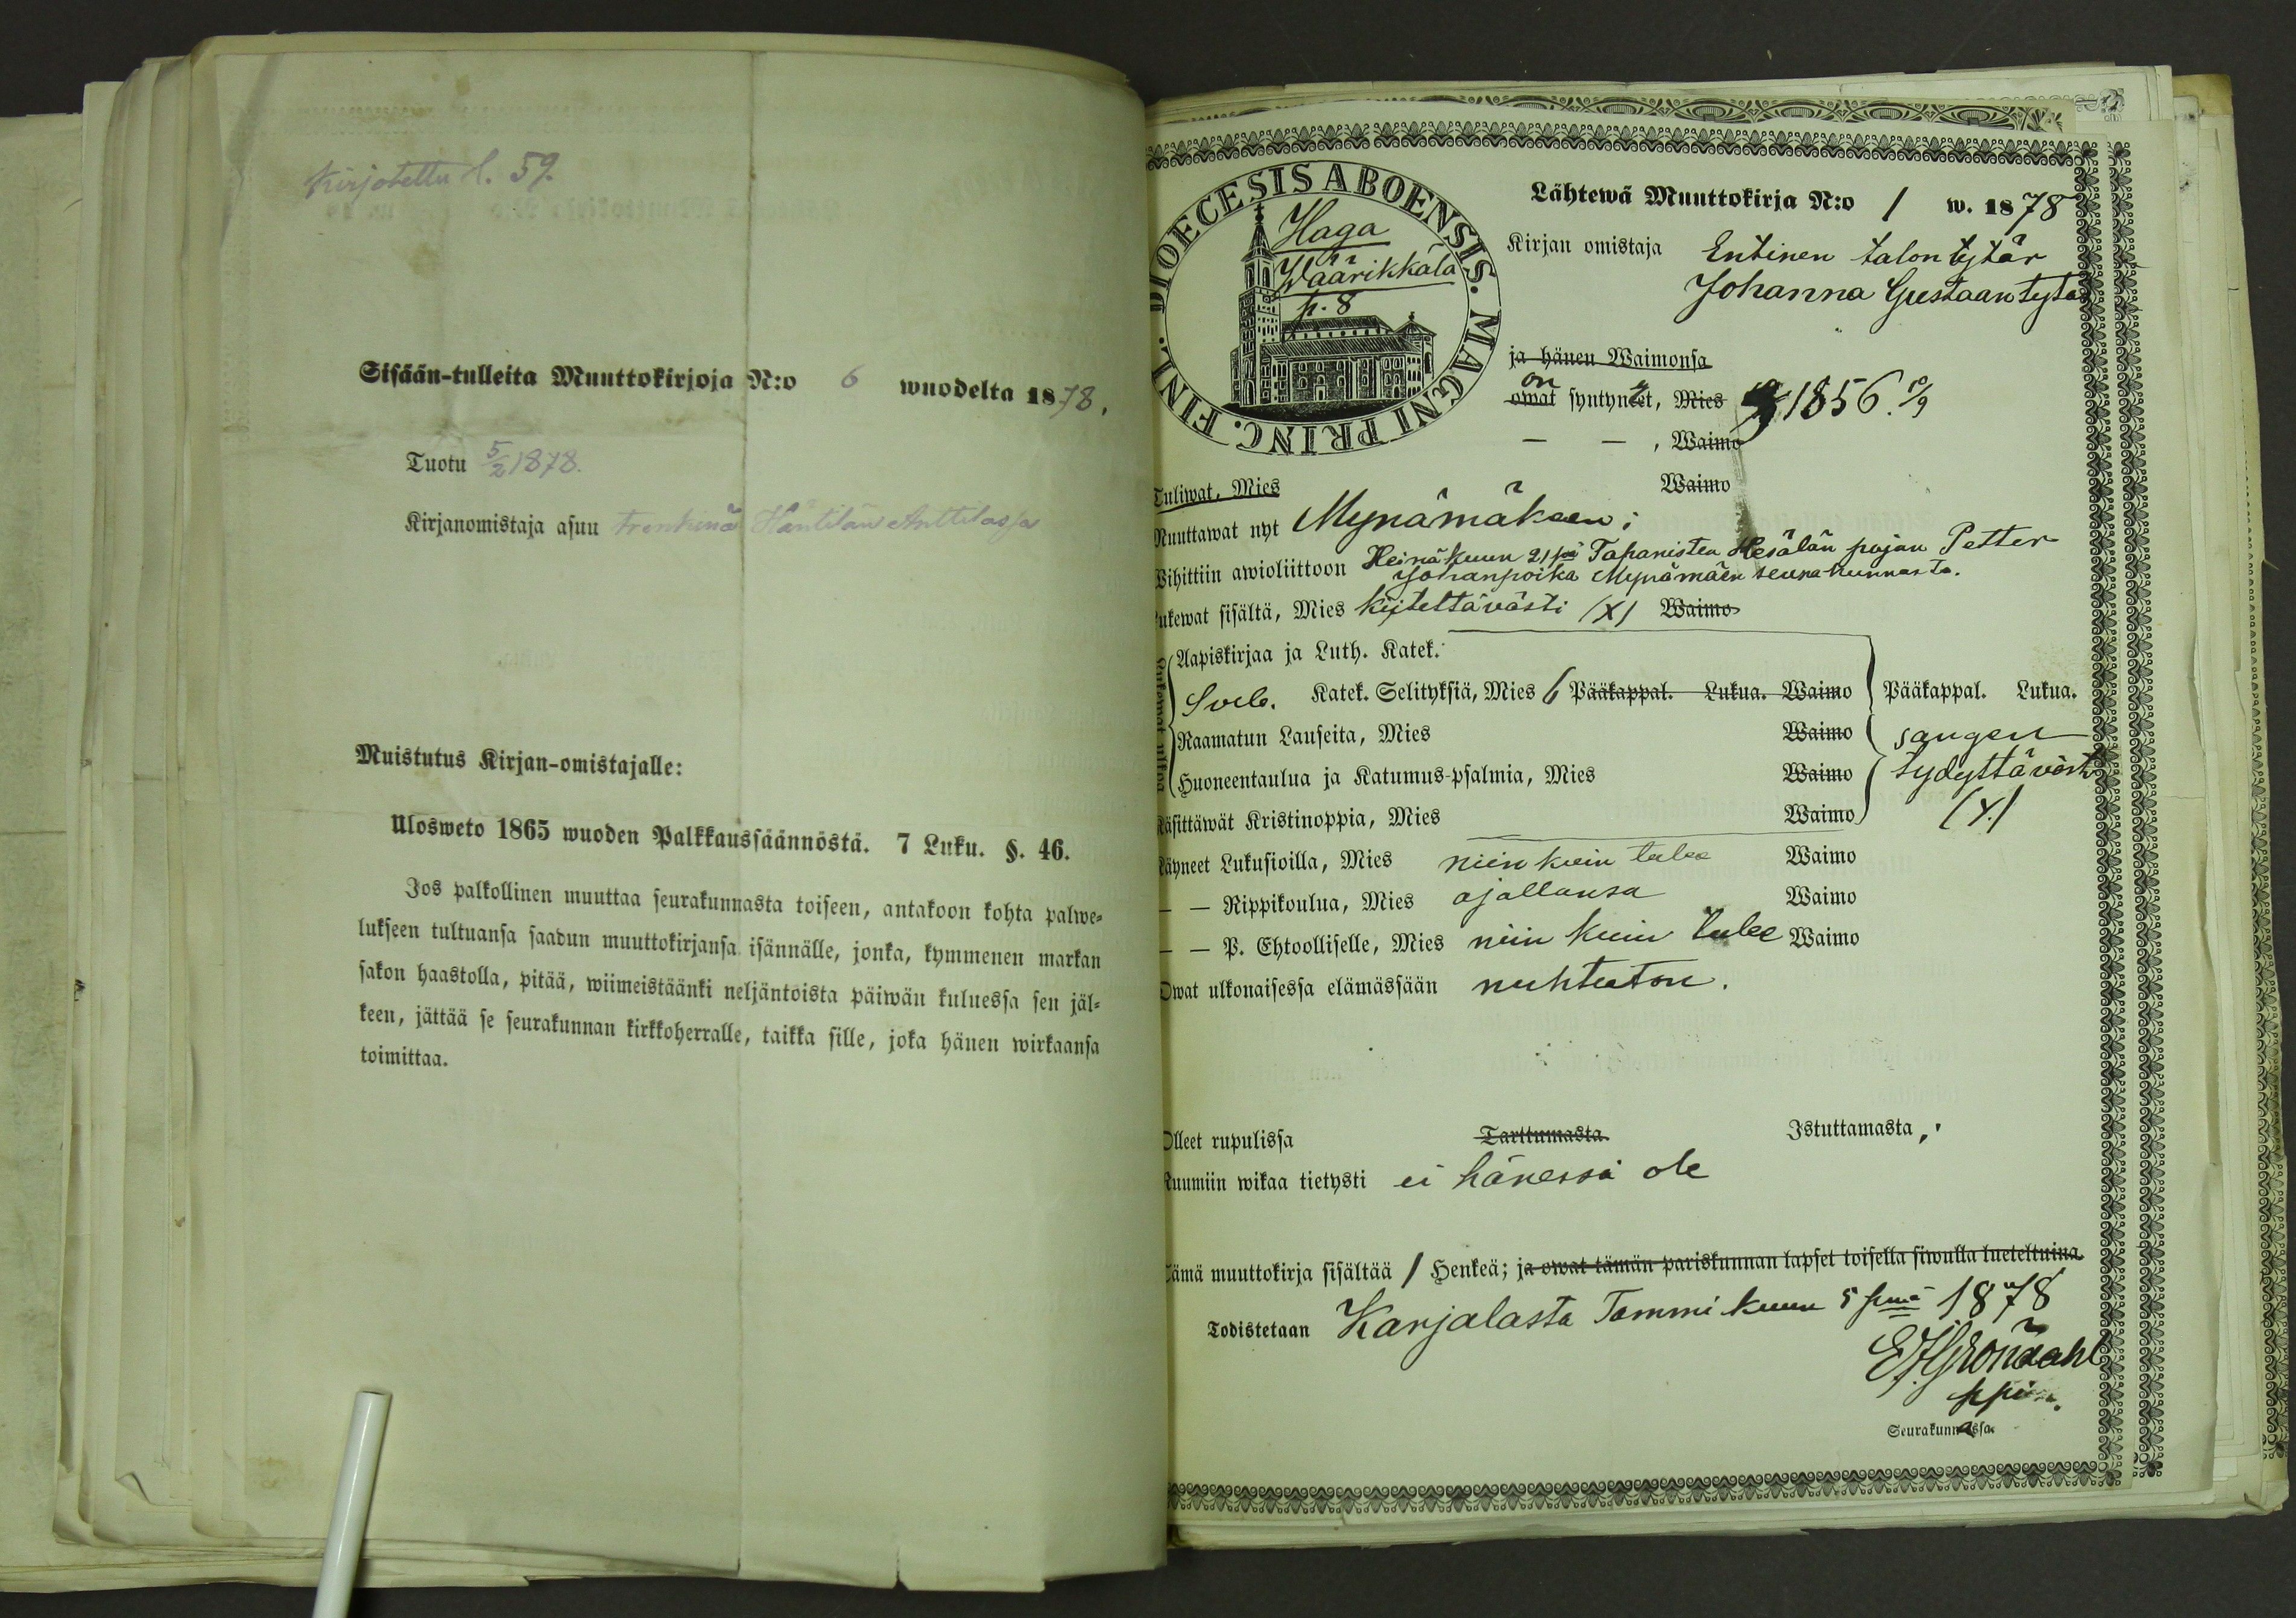 Kirjotettu l. 59.
Sisään-tulleita Muuttokirjoja N:o 6 wuodelta 1878.
Tuotu 5/2 1878.
Kirjanomistaja asuu trenkinä Häntilän Anttilassa
Muistutus Kirjan-omistajalle:
Ulosweto 1865 wuoden Palkkaussäännöstä. 7 Luku. §. 46.
Jos palkollinen muuttaa seurakunnasta toiseen, antakoon kohta palwe-
lukseen tultuansa saadun muuttokirjansa isännälle, jonka, kymmenen markan
sakon haastolla, pitää, wiimeistäänki neljäntoista päiwän kuluessa sen jäl-
keen, jättää se seurakunnan kirkkoherralle, taikka sille, joka hänen wirkaansa
toimittaa.
DIOECESIS ABOENSIS. MAGNI PRINC. FINL.
Haga
Wäärikkäla
p. 8
Lähtewä Muuttokirja N:o 1 w. 1878
Kirjan omistaja Entinen talontytär
Johanna Gustaantytä
ja hänen Waimonsa
on
owat syntyneet, Mies 1856. 10/9
— — , Waimo
Tuliwat, Mies Waimo
Muuttawat nyt Mynämäkeen;
Wihittiin awioliittoon Heinäkuun 21 Tapanisten Hesälän pojan Petter
Johanpoika Mynämäen seurakunnasta.
Lukewat sisältä, Mies kiitettävästi (X) Waimo
Aapiskirjaa ja Luth. Katek.
Sveb. Katek. Selityksiä, Mies 6 Pääkappal. Lukua. Waimo Pääkappal. Lukua.
Raamatun Lauseita, Mies Waimo sangen
Huoneentaulua ja Katumus-psalmia, Mies Waimo tydyttävästi
Käsittäwät Kristinoppia, Mies Waimo (X.)
Käyneet Lukusioilla, Mies niinkuin tulee Waimo
— — Rippikoulua, Mies ajallansa Waimo
— — P. Ehtoolliselle, Mies niin kuin tulee Waimo
Owat ulkonaisessa elämässään nuhteeton.
Olleet rupulissa Tarttumasta. Istuttamasta,
Ruumiin wikaa tietysti ei hänessä ole
Tämä muuttokirja sisältää 1 Henkeä; ja owat tämän pariskunnan lapset toisella siwulla lueteltuina.
Todistetaan Karjalasta Tammikuun 5 pnä 1878
E.J. Gröndahl
Seurakunnassa.